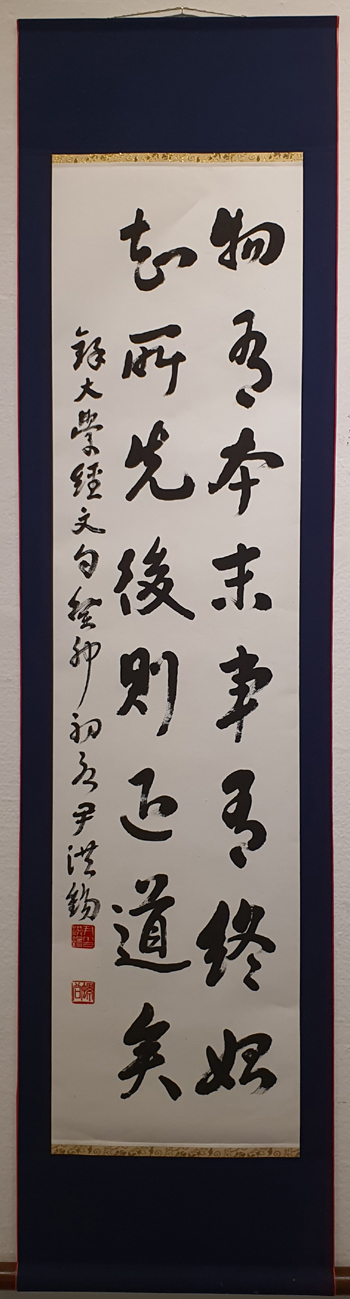 物有本末事有終始
知所先後則近道矣
錄大學經文句癸卯初夏尹洪錫